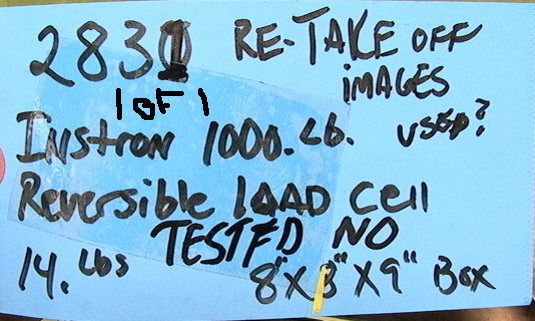 2831 RE-TAKE OFF
IMAGES
1 OF 1
INstroN 1000.Lb. USED?
Reversible LOAD Cell
TESTED NO
14. Lbs 8"X8"X9" Box